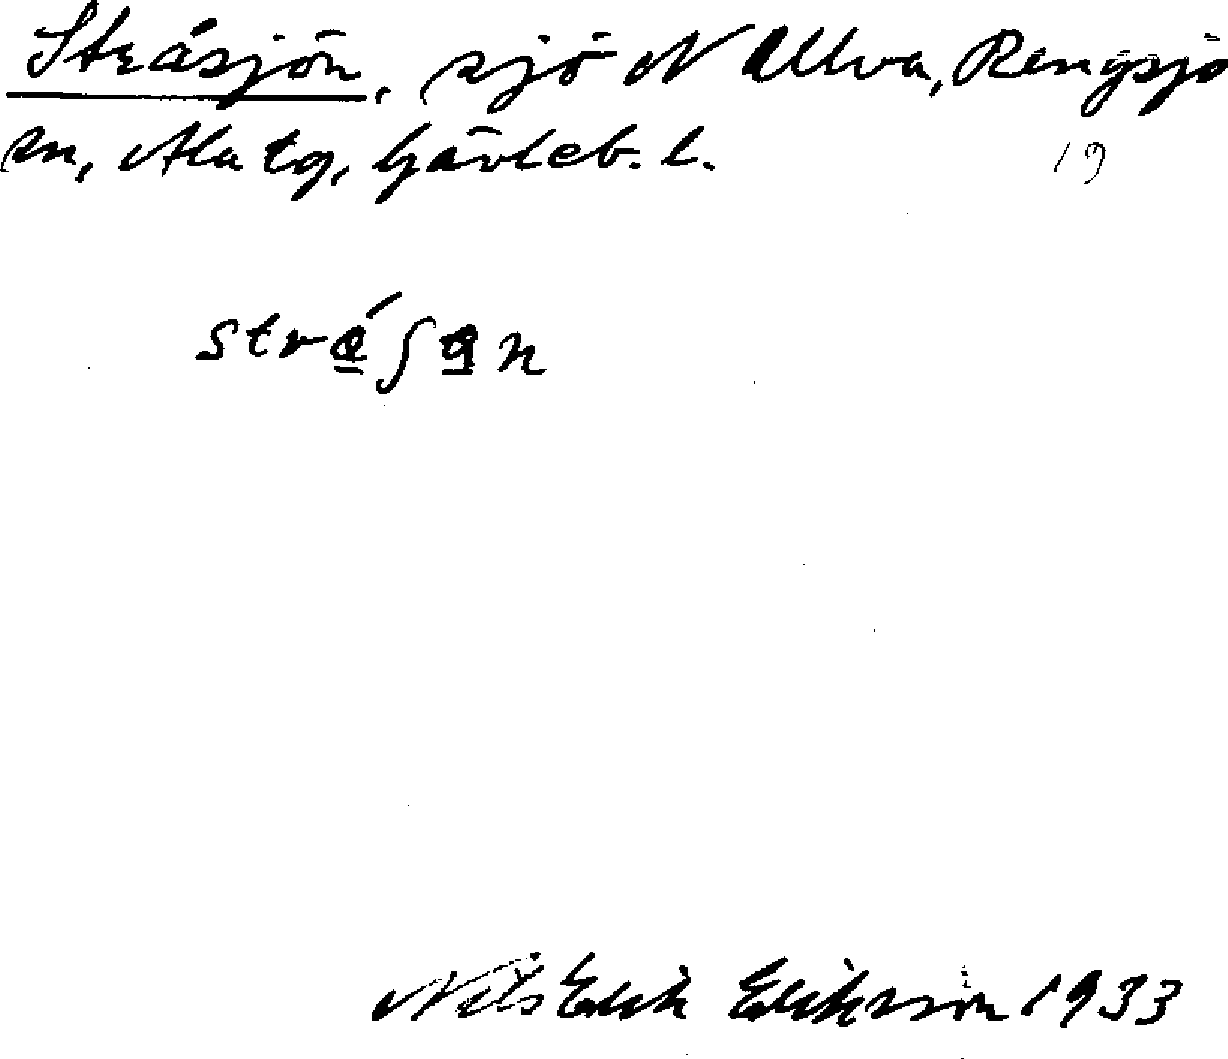 Stråsjön, sjö N Ullva, Rengsjö
sn, Ala tg, Gävleb. l.
19
Nils Erik Eriksson 1933